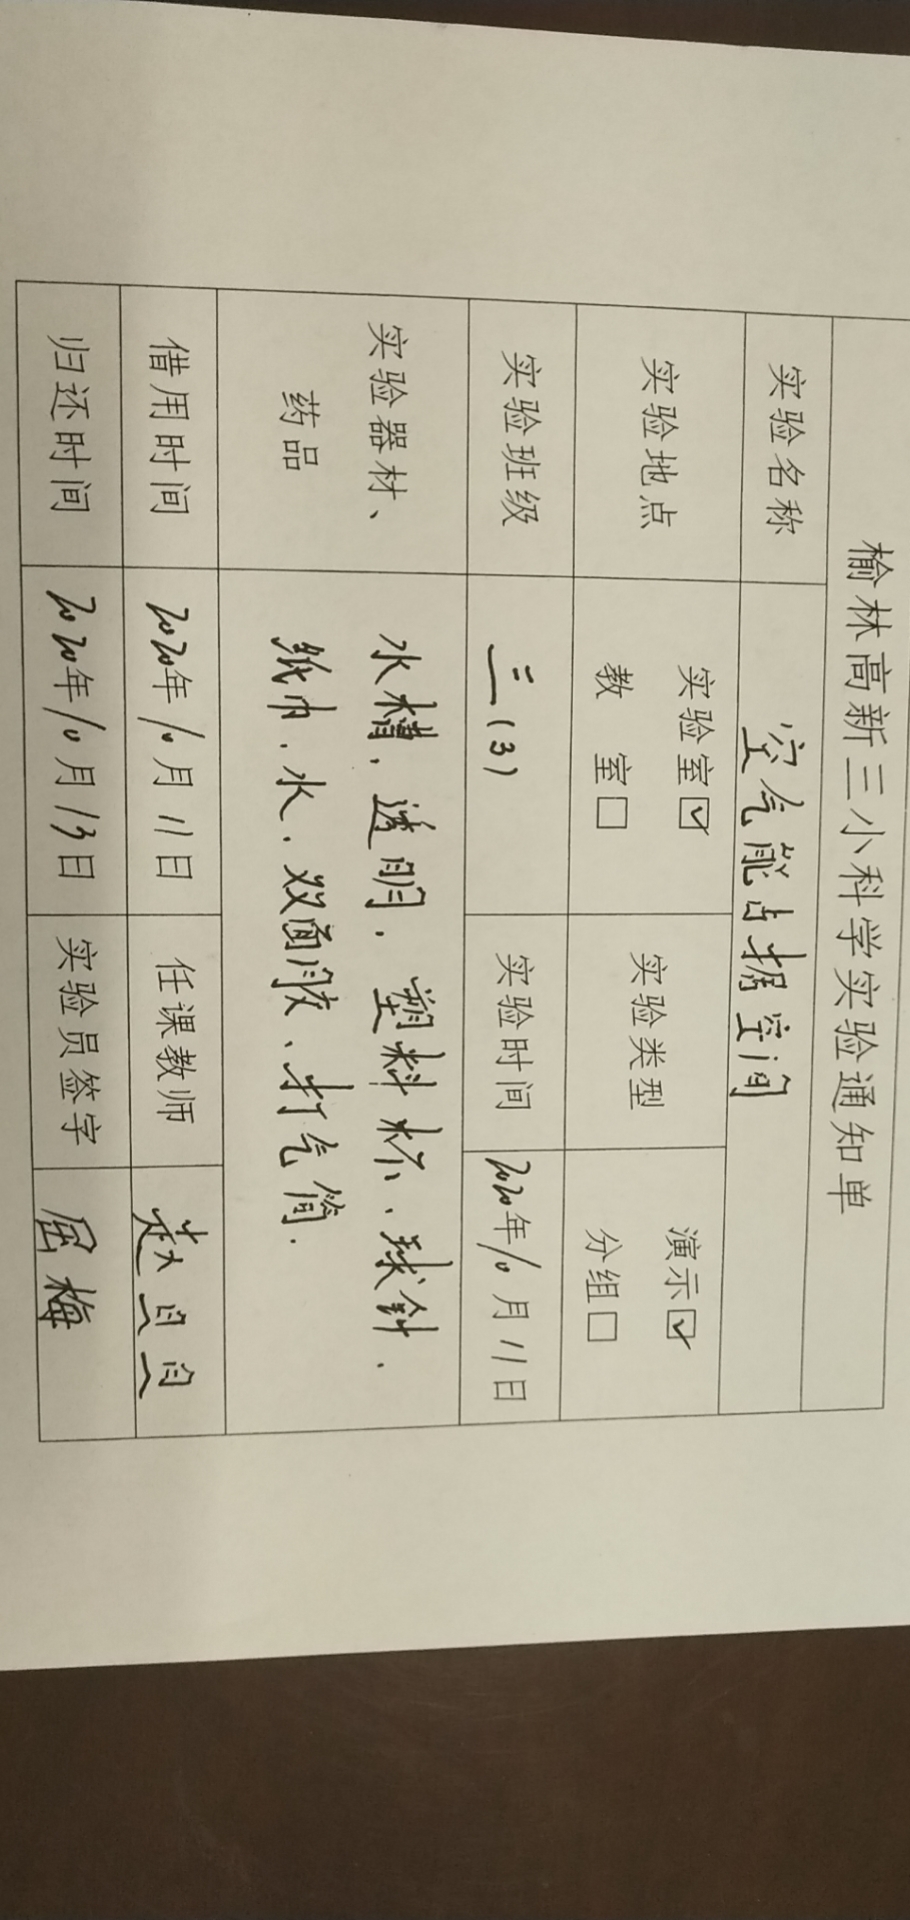 榆林高新三小科学实验通知单
实验名称 空气能占据空间
实验地点 实验室☑ 教 室□ 实验类型 演示☑ 分组□
实验班级 三(3) 实验时间 2020年10月11日
实验器材、药品 水槽、透明、塑料杯、球针、
纸巾、水、双面胶、打气筒.
借用时间 2020年10月11日 任课教师 赵
归还时间 2020年10月13日 实验员签字 屈梅